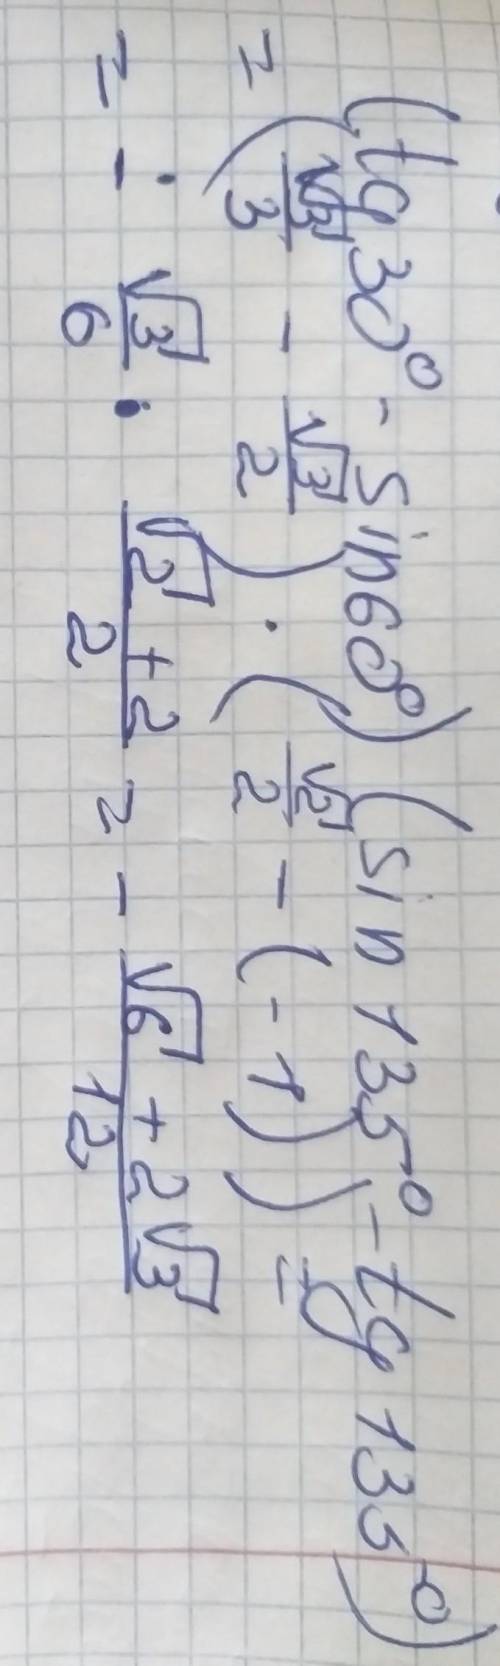 (tg 30° - sin 60°) (sin 135° - tg 135°)
= (√3/3 - √3/2) · (√2/2 - (-1)) =
= - √3/6 · (√2 + 2)/2 = - (√6 + 2√3)/12